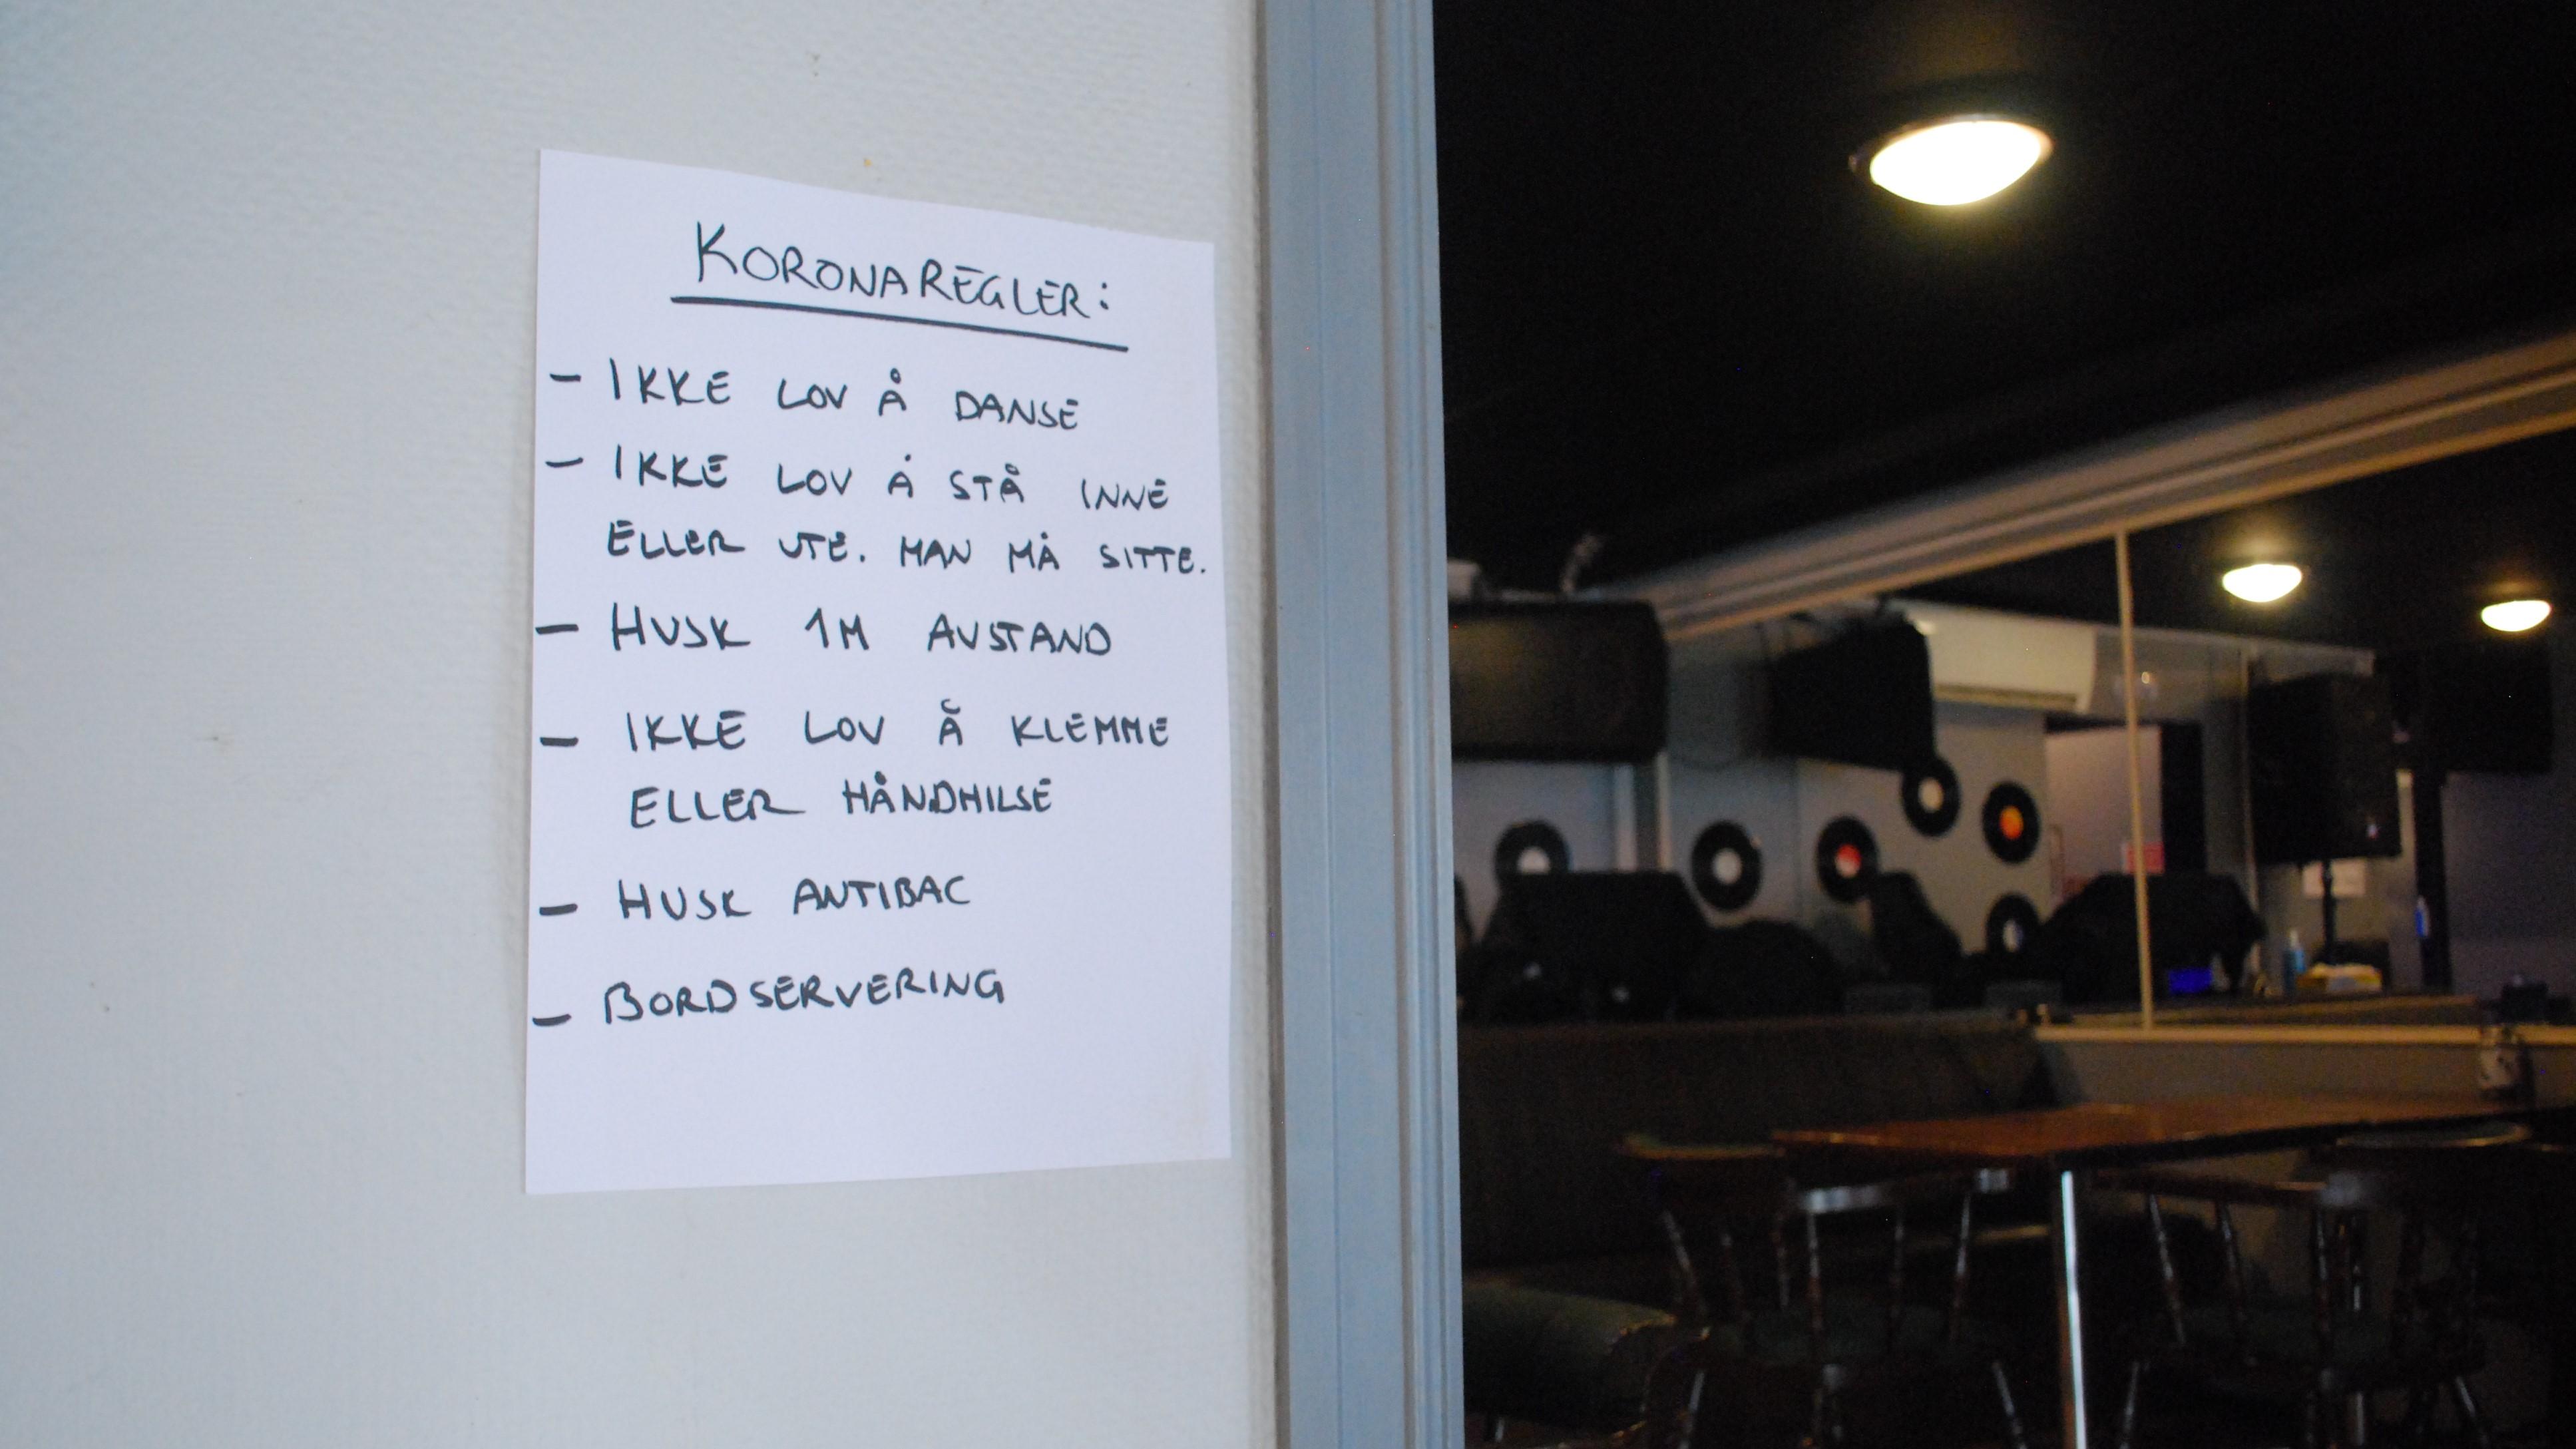 KORONAREGLER:
- IKKE LOV Å DANSE
- IKKE LOV Å STÅ INNE
ELLER UTE. MAN MÅ SITTE.
- HUSK 1M AVSTAND
- IKKE LOV Å KLEMME
ELLER HÅNDHILSE
- HUSK ANTIBAC
- BORDSERVERING